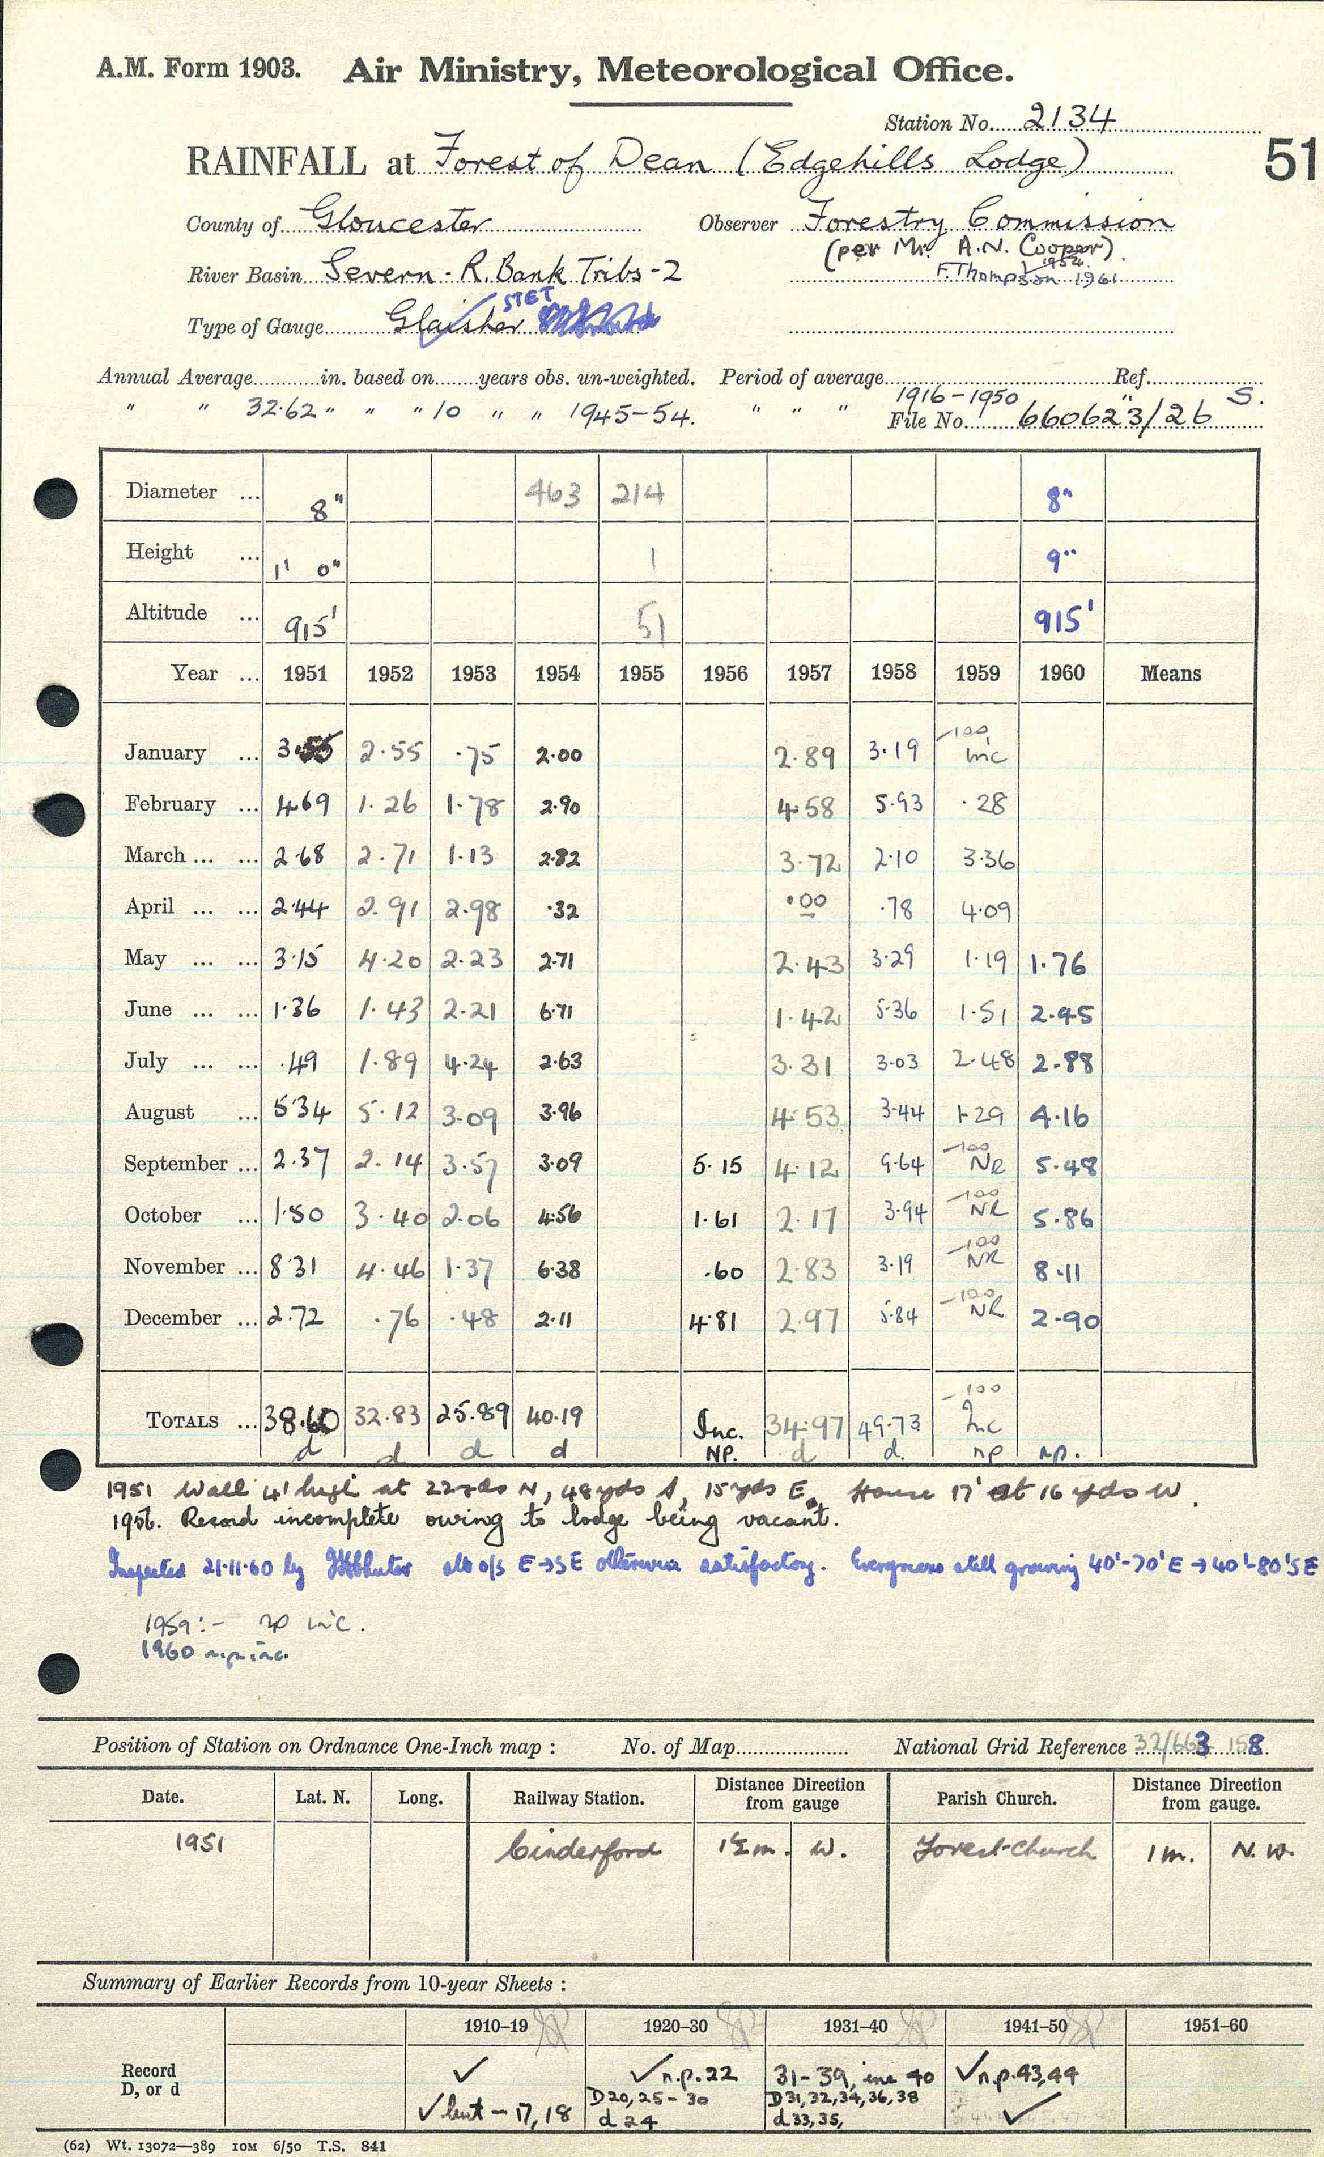 A.M. Form 1903. Air Ministry, Meteorological Office.
Station No. 2134
RAINFALL at Forest of Dean (Edgehills Lodge)
51
County of Gloucester Observer Forestry Commission
(per Mr. A.N. Cooper).
River Basin Severn - R. Bank Tribs - 2
1954
F. Thompson 1961
STET
Type of Gauge Glaisher
Annual Average in. based on years obs. un-weighted. Period of average Ref.
1916-1950
" " 32.62 " " " 10 " " 1945-54. " " " " S.
File No. 660623/26
Diameter ... 8" 463 214 8"
Height ... 1' 0" 1 9"
Altitude ... 915' 51 915'
Year ... 1951 1952 1953 1954 1955 1956 1957 1958 1959 1960 Means
January ... 2.55 .75 2.00 2.89 3.19 -100 Inc
February ... 4.69 1.26 1.78 2.90 4.58 5.93 .28
March ... ... 2.68 2.71 1.13 2.82 3.72 2.10 3.36
April ... ... 2.44 2.91 2.98 .32 .00 .78 4.09
May ... ... 3.15 4.20 2.23 2.71 2.43 3.29 1.19 1.76
June ... ... 1.36 1.43 2.21 6.71 1.42 5.36 1.51 2.95
July ... ... .49 1.89 4.24 2.63 3.31 3.03 2.48 2.88
August ... 5.34 5.12 3.09 3.96 4.53 3.44 1.29 4.16
September ... 2.37 2.14 3.57 3.09 5.15 4.12 9.64 -100 NR 5.48
October ... 1.50 3.40 2.06 4.56 1.61 2.17 3.94 -100 NR 5.86
November ... 8.31 4.46 1.37 6.38 .60 2.83 3.19 -100 NR 8.11
December ... 2.72 .76 .48 2.11 4.81 2.97 5.84 -100 NR 2.90
TOTALS ... 38.60 32.83 25.89 40.19 Inc. 34.97 49.73 -100 Inc
d d d d NP. d d. np np.
1951 Wall 4' high at 22 yds N, 48 yds S, 15 yds E. House 17' at 16 yds W.
1956. Record incomplete owing to lodge being vacant.
Inspected 21.11.60 by o/s E → SE otherwise satisfactory. Evergreens still growing 40'-70' E → 40'-80' SE
1959:- np inc.
1960 np inc.
Position of Station on Ordnance One-Inch map : No. of Map National Grid Reference 32/663 158
Date. Lat. N. Long. Railway Station. Distance from gauge Direction Parish Church. Distance from gauge. Direction
1951 Cinderford 1½ m. W. Forest-Church 1 m. N.W.
Summary of Earlier Records from 10-year Sheets :
1910–19 1920–30 1931–40 1941–50 1951–60
Record ✓ ✓ n.p. 22 31-39, inc 40 ✓ n.p. 43, 44
D, or d ✓ but - 17, 18 D 20, 25-30 D 31, 32, 34, 36, 38 ✓
d 24 d 33, 35,
(62) Wt. 13072—389 10M 6/50 T.S. 841